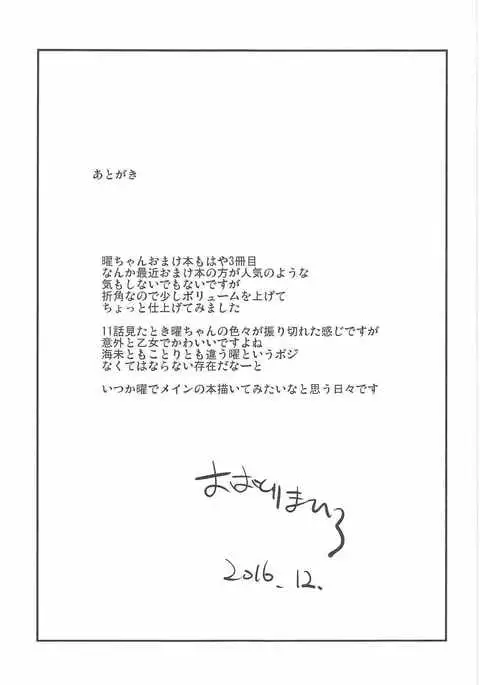 あとがき
曜ちゃんおまけ本もはや3冊目
なんか最近おまけ本の方が人気のような
気もしないでもないですが
折角なので少しボリュームを上げて
ちょっと仕上げてみました
11話見たとき曜ちゃんの色々が振り切れた感じですが
意外と乙女でかわいいですよね
海未ともことりとも違う曜というポジ
なくてはならない存在だなーと
いつか曜でメインの本描いてみたいなと思う日々です
おおとりまひろ
2016.12.